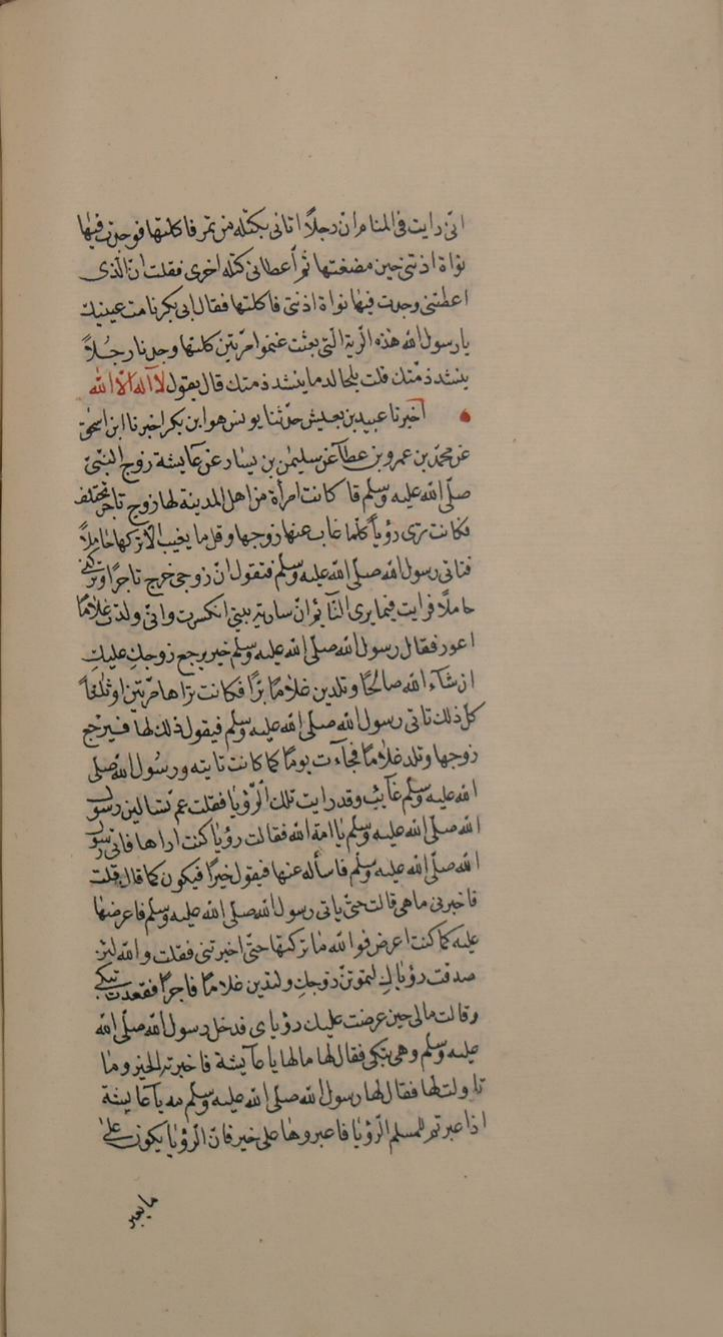 انى رايت فى المنام ان رجلاً اتانى بكتله من تمر فاكلتها فوجدت فيها
نواة اذتنى حين مضغتها ثم أعطانى كتله اخرى فقلت ان الذى
اعطتنى وجدت فيها نواة اذتنى فاكلتها فقال ابى بكر نامت عينيك
يارسول الله هذه الرية التى بعثت غنموا مرتين كلتها وجدنا رجلاً
ينشد ذمتك قلت يلخالد ما ينشد ذمتك قال يقول لا آله الا الله
اخبرنا عبيد بن يعيش حدثنا يونس هو ابن بكر اخبرنا ابن اسحق
عن محمد بن عمرو بن عطآ عن سليمن بن يسار عن عايشة زوج النبى
صلى الله عليه وسلم قا كانت امرأة من اهل المدينة لها زوج تاجر تختلف
فكانت ترى رؤياً كلما غاب عنها زوجها وقل ما يغيب الا تركها حاملاً
فتاتى رسول الله صلى الله عليه وسلم فتقول ان زوجى خرج تاجرًا وتركنى
حاملا فرايت فيما يرى النآئم ان سارية بيتى انكسرت وانى ولدت غلامًا
اعور فقال رسول الله صلى الله عليه وسلم خير يرجع زوجكِ عليكِ
ان شآء الله صالحًا وتلدين غلامًا برًا فكانت تراها مرتين او ثلثاً
كل ذلك تاتى رسول الله صلى الله عليه وسلم فيقول ذلك لها فيرجع
زوجها وتلد غلامًا فجآءت يومًا كما كانت تايته ورسُول الله صلى
الله عليه وسلم غآيب وقد رايت تلك الرؤيا فقلت عم تسالين رسول
الله صلى الله عليه وسلم ياامة الله فقالت رؤيا كنت اراها فاتى رسول
الله صلى الله عليه وسلم فاسأله عنها فيقول خيرًا فيكون كما قال فقلت
فاخبرنى ما هى قالت حتى ياتى رسول الله صلى الله عليه وسلم فاعرضها
عليه كما كنت اعرض فوالله ما تركتها حتى اخبرتنى فقلت والله لئن
صدقت رؤياكِ ليموتن زوجكِ ولتدين غلامًا فاجرًا فقعدت تبكى
وقالت مالى حين عرضت عليك رؤياى فدخل رسول الله صلى الله
عليه وسلم وهى تبكى فقال لها مالها يا عآيشة فاخبرته الخبر وما
تاولت لها فقال لها رسول الله صلى الله عليه وسلم مه يا عآيشة
اذا عبرتم للمسلم الرؤيا فاعبروها على خير فان الرؤيا يكون على
ما يعبر